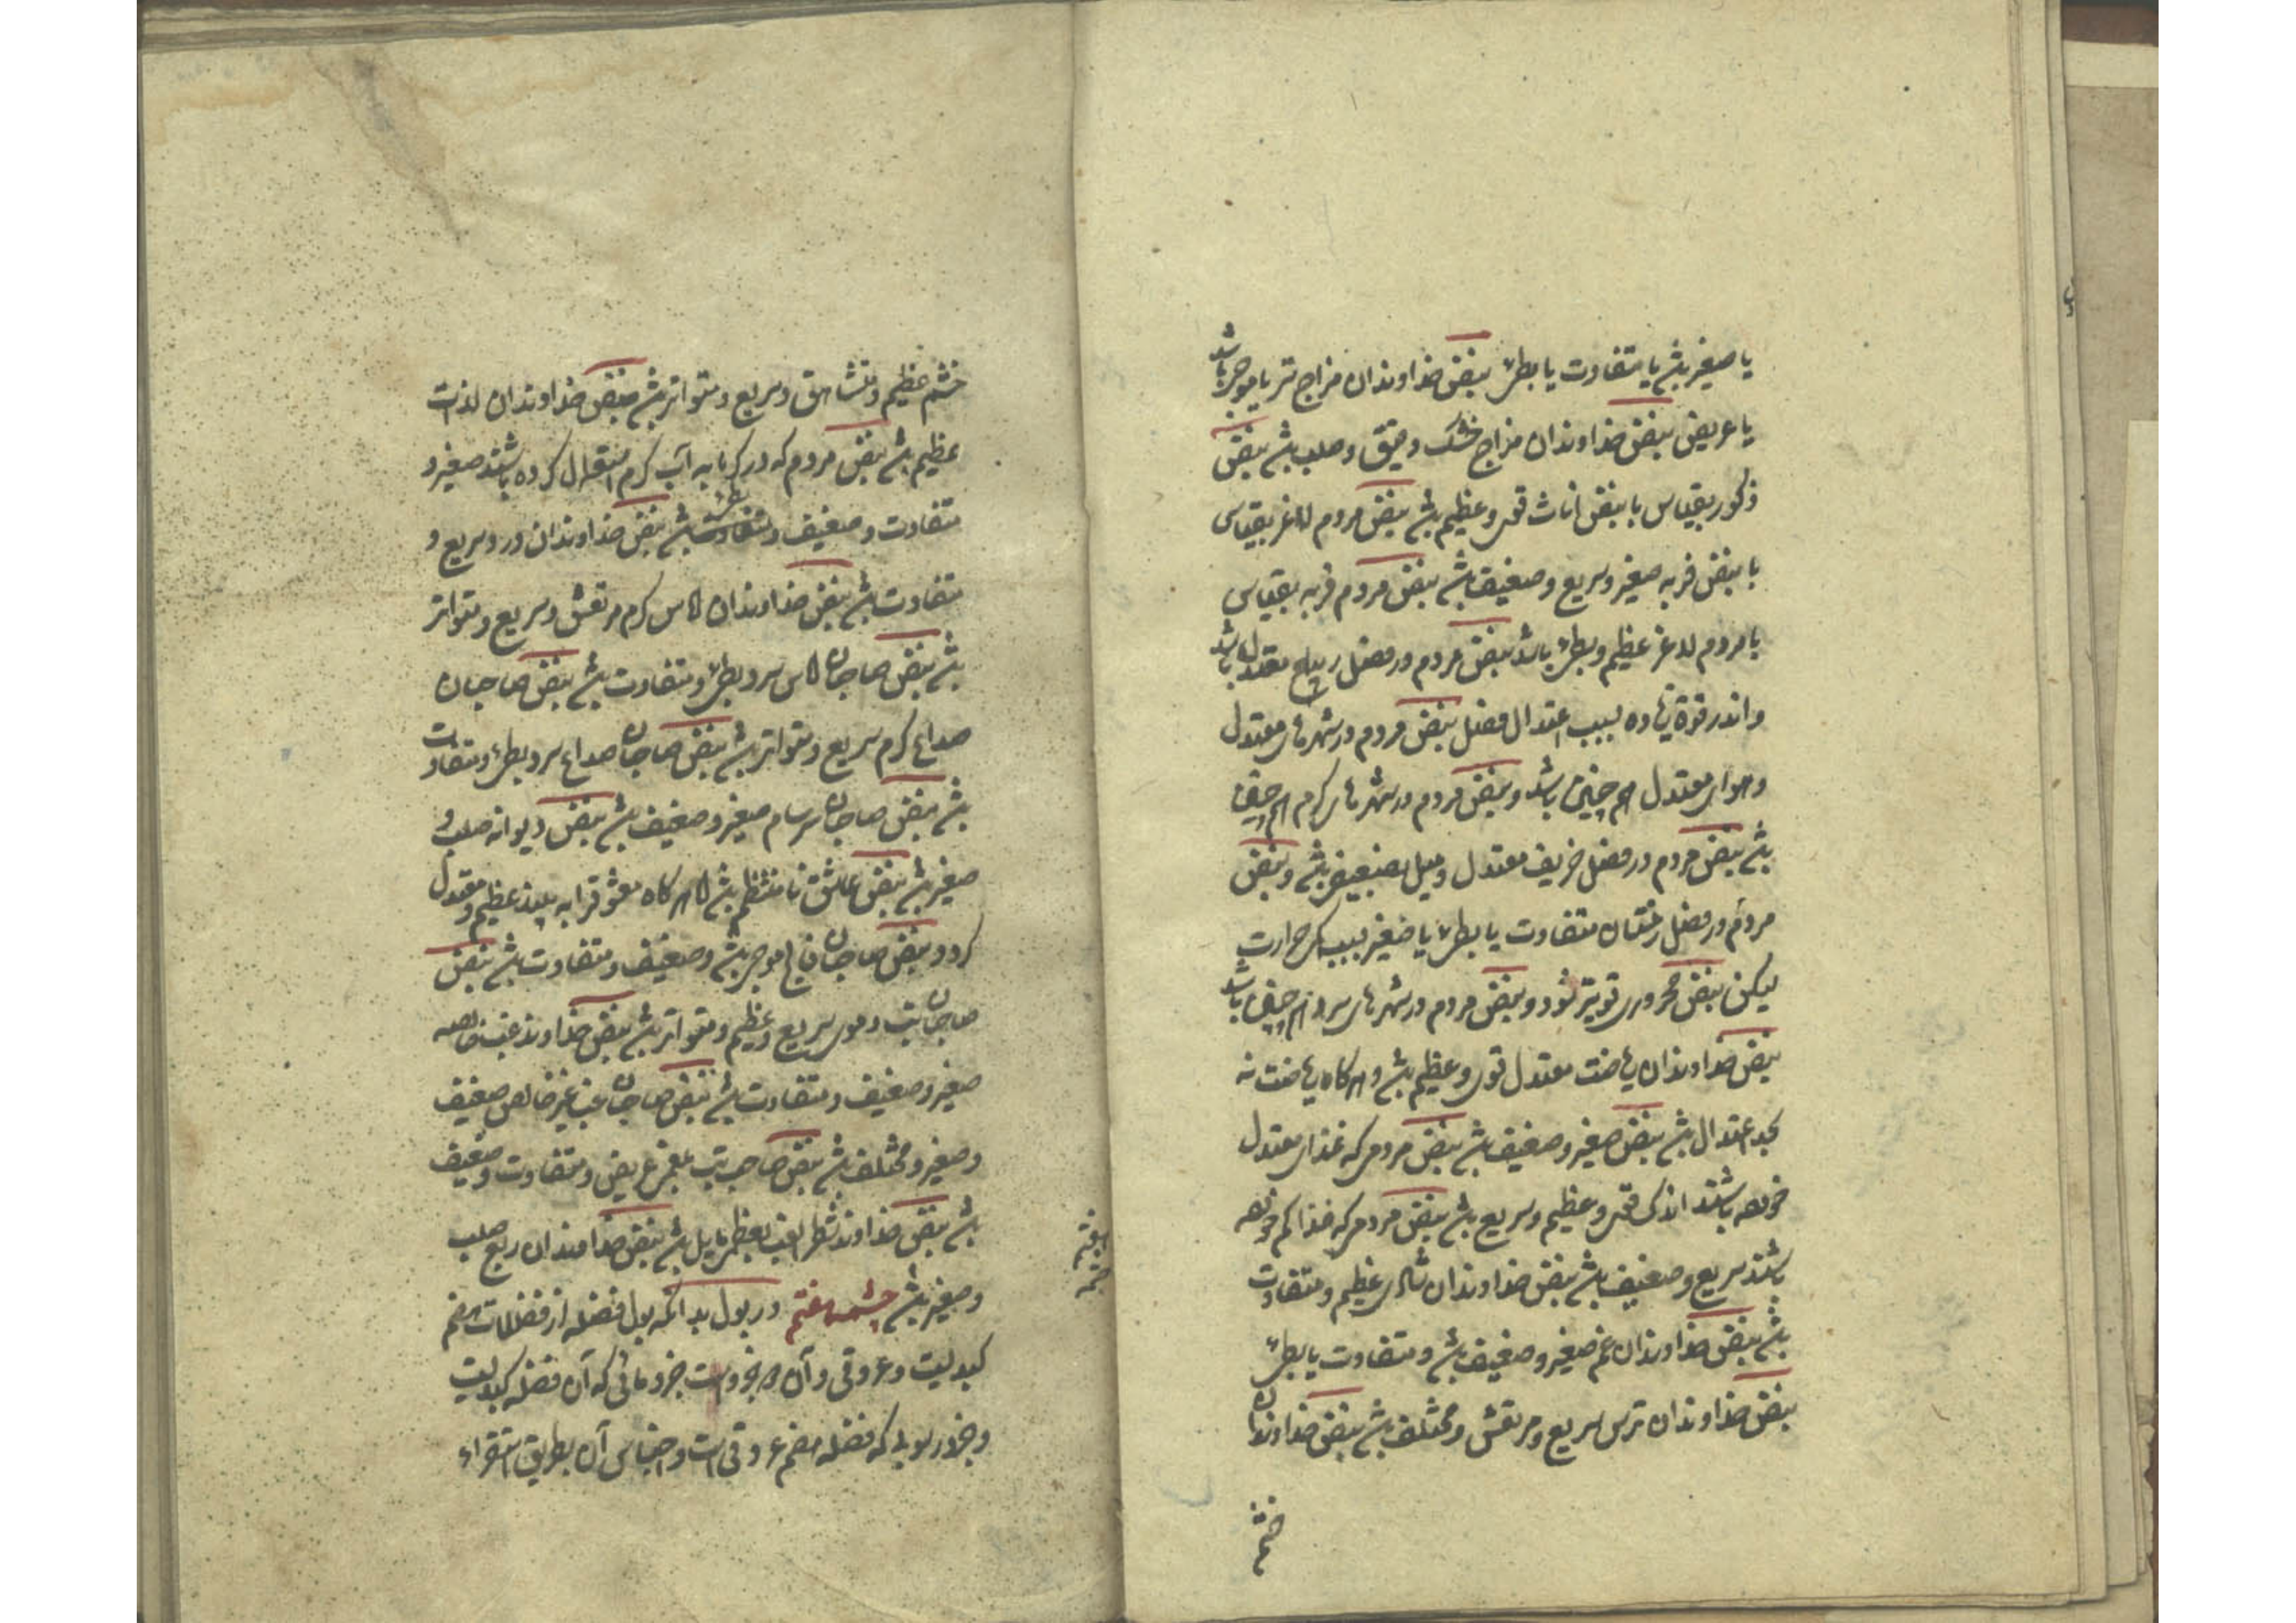 یا صغیر باشد یا متفاوت یا بطی نبض خداوندان مزاج تر یا موجی باشد
یا عریض نبض خداوندان مزاج خشک و ضیق و صلب باشد نبض
ذکور بقیاس با نبض اناث قوی و عظیم باشد نبض مردم لاغر بقیاس
با نبض فربه صغیر و سریع و ضعیف باشد نبض مردم فربه بقیاس
با مردم لاغر عظیم و بطی باشد نبض مردم در فصل ربیع معتدل باشد
و اندر قوة زیاده بسبب اعتدال فصل نبض مردم در شهرهای معتدل
و هوای معتدل هم چنین باشد و نبض مردم در شهر های کرم هم چنین
باشد نبض مردم در فصل خریف معتدل و میل بضعیفی باشد و نبض
مردم در فصل زمستان متفاوت یا بطی یا صغیر بسبب حرارت
لیکن نبض محروری قویتر شود و نبض مردم در شهر های سرد هم چنین باشد
نبض خداوندان ریاضت معتدل قوی و عظیم باشد و هرکاه ریاضت نه
بحد اعتدال باشد نبض صغیر و ضعیف باشد نبض مردمی که غذای معتدل
خورده باشند اندکی قوی و عظیم و سریع باشد نبض مردمی که غذا کم خورده
باشند سریع و ضعیف باشد نبض خداوندان شادی عظیم و متفاوت
باشد نبض خداوندان غم صغیر و ضعیف باشد و متفاوت یا بطی
نبض خداوندان ترس سریع و مرتعش و مختلف باشد نبض خداوندان
خشم
خشم عظیم و شاهق و سریع و متواتر باشد نبض خداوندان لذت
عظیم باشد نبض مردم که در کرمابه آب کرم استعمال کرده باشند صغیر و
متفاوت و ضعیف و متفاوت باشد نبض خداوندان درد سریع و
متفاوت باشد نبض خداوندان آماس کرم مرتعش و سریع و متواتر
باشد نبض صاحبان آماس سرد بطی و متفاوت باشد نبض صاحبان
صداع کرم سریع و متواتر باشد نبض صاحبان صداع سرد بطی و متفاوت
باشد نبض صاحبان سرسام صغیر و ضعیف باشد نبض دیوانه صلب و
صغیر باشد نبض عاشق نا منتظم باشد اما هرکاه معشوق را به بیند عظیم و معتدل
کردد و نبض صاحبان فالج موجی باشد و ضعیف و متفاوت باشد نبض
صاحبان تب دموی سریع و عظیم و متواتر باشد نبض خداوند غب خالصه
صغیر و ضعیف و متفاوت باشد نبض صاحبان غب غیر خالص ضعیف
و صغیر و مختلف باشد نبض صاحب تب بلغمی عریض و متفاوت و ضعیف
باشد نبض خداوند شطر الغب بعظم مایل باشد نبض خداوندان ربع صلب
و صغیر باشد چشمه هفتم در بول بدانکه بول فضله از فضلات هضم
کبدیست و عروقی و آن دو جزوست جزو مائی که آن فضله کبدیست
و جزو رسوبی که فضله هضم عروقی است و اجناس آن بطریق استقراء